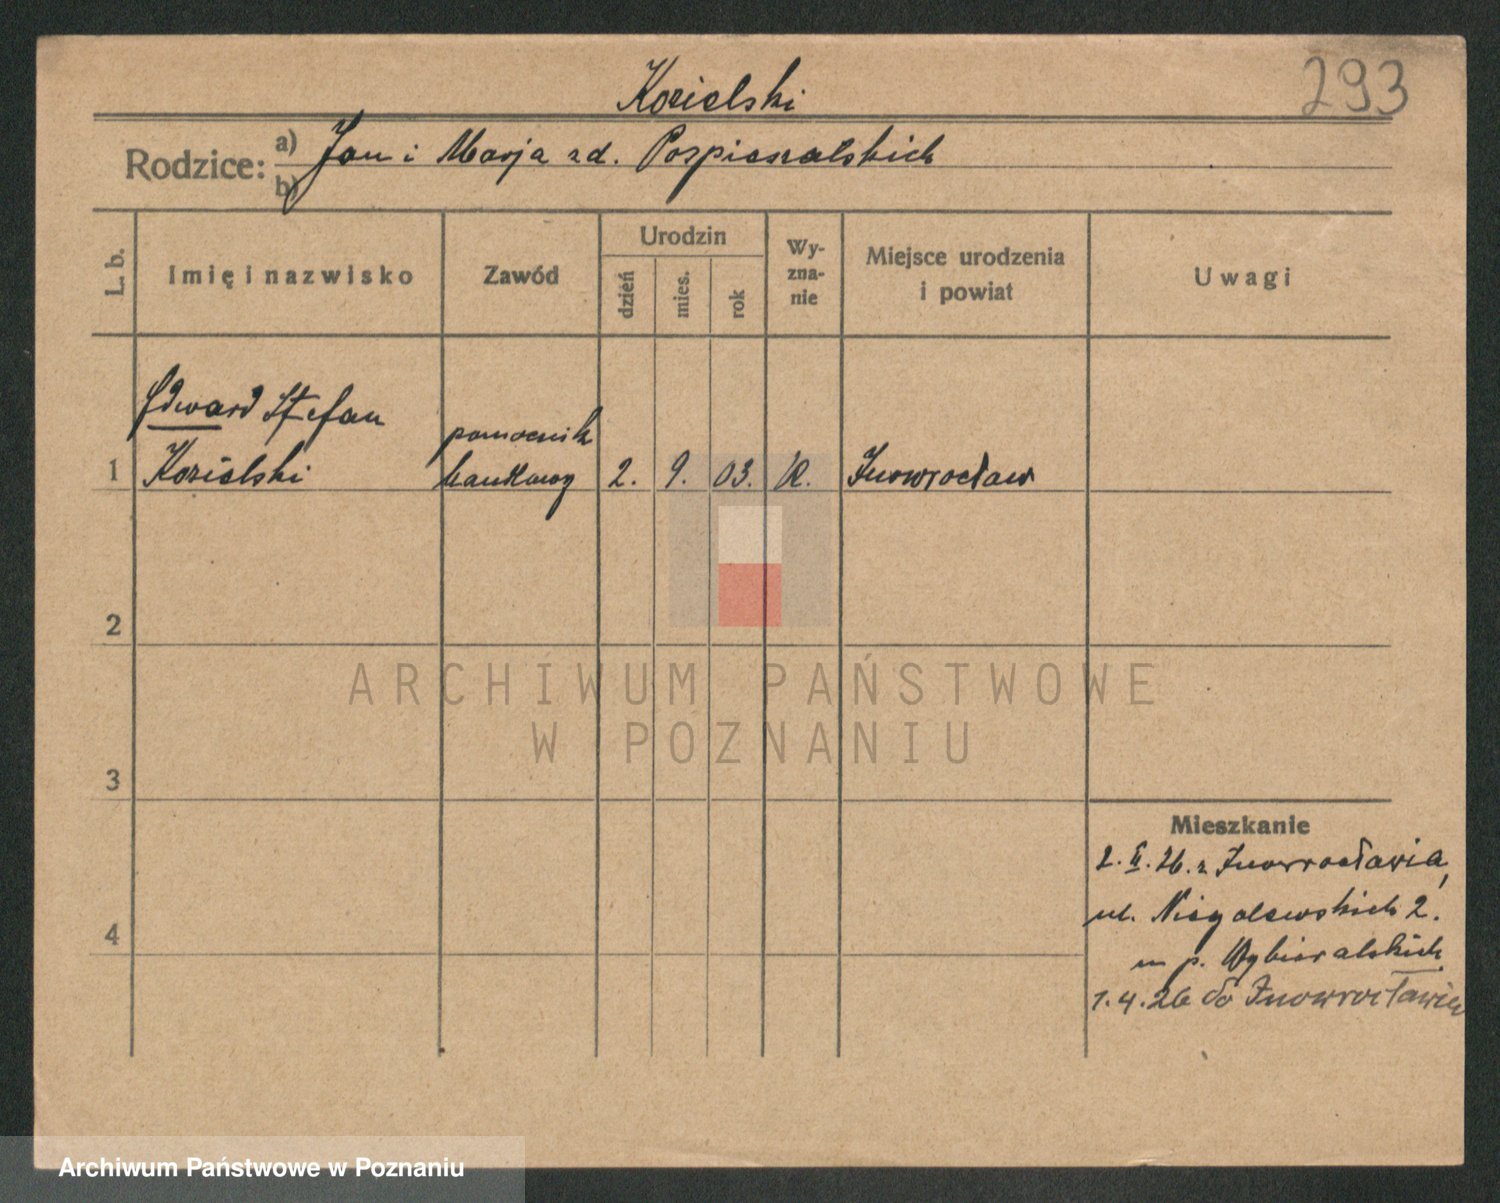 293
Kozielski
Rodzice: a) Jan i Marja zd. Pospieszalskich
b)
L. b.
Imię i nazwisko
Zawód
Urodzin
dzień
mies.
rok
Wy-
zna-
nie
Miejsce urodzenia
i powiat
Uwagi
Edward Stefan
pomocnik
1 Kozielski bankowy 2. 9. 03. R. Inowrocław
2
3
4
Mieszkanie
2. II. 26. z Inowrocławia,
ul. Niegolewskich 2.
u p. Wybieralskich
1.4.26 do Inowrocławia
ARCHIWUM PAŃSTWOWE
W POZNANIU
Archiwum Państwowe w Poznaniu